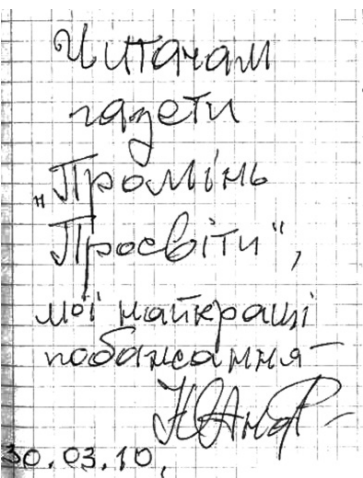 Читачам
газети
„Промінь
Просвіти",
мої найкращі
побажання –
30.03.10,